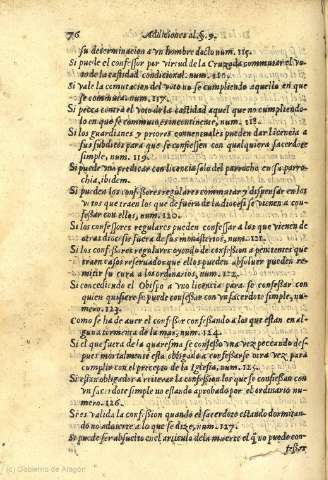 76 Addiciones al.§.9.
su determinacion a vn hombre docto num. 115.
Si puede el confessor por virtud de la Cruzada commutar el vo-
to de la castidad condicional. num. 116.
Si vale la comutacion del voto no se cumpliendo aquello en que
se commuta num. 117.
Si pecca contra el voto de la castidad aquel que no cumplien-
do lo en que se commuta es incontinente, num. 118.
Si los guardianes y priores conuentuales pueden dar licencia a
sus subditos para que se confiessen con qualquiera sacerdote
simple, num. 119.
Si puede vno predicar con licencia sola del parrocho en su parro-
chia, ibidem.
Si pueden los confessores regulares commutar y dispensar en los
votos que traen los que de fuera de la diocesi se vienen a con-
fessar con ellos, num. 120.
Si los confessores regulares pueden confessar a los que vienen de
otras diocesis fuera de su monasterios, num. 121.
Si los confessores regulares oyendo de confession a penitentes que
traen casos reseruados que ellos pueden absoluer pueden re-
mitir su cura a los ordinarios, num. 122.
Si concediendo el Obispo a vno licencia para se confessar con
quien quisiere se puede confessar con vn sacerdote simple, nu-
mero. 123.
Como se ha de auer el confessor confessando a los que estan en al-
guna tormenta de la mar, num. 124.
Si el que fuera de la quaresma se confesso vna vez peccando des-
pues mortalmente esta obligado a confessarse otra vez para
cumplir con el precepto de la Iglesia, num. 125.
Si estan obligados a reiterar la confession los que se confiessan con
vn sacerdote simple no estando aprobado por el ordinario nu-
mero. 126.
Si es valida la confession quando el sacerdote estando dormitan-
do no aduierte a lo que se dize, num. 127.
Si puede ser absuelto en el articulo de la muerte el q̃ no puede con-
fessar
(c) Gobierno de Aragón